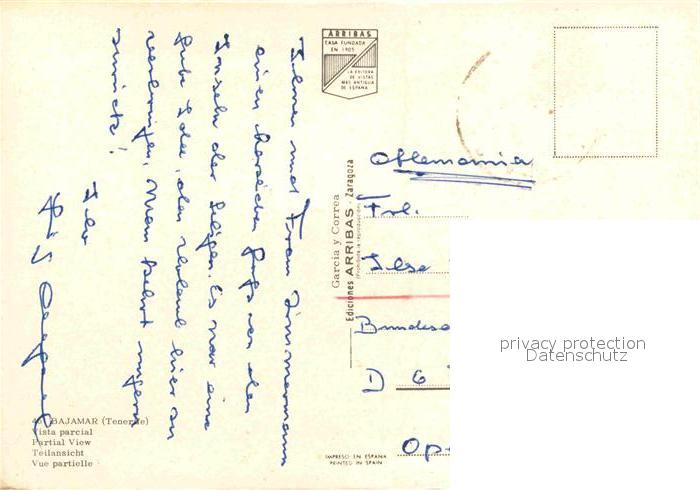 Ihnen und Frau Zimmermann
einen herzlichen Gruß von den
Inseln der Seligen. Es war eine
gute Idee, den Urlaub hier zu
verbringen. Man kehrt ungern
zurück!
Ihr
ARRIBAS
CASA FUNDADA
EN 1905
LA EDITORA
DE VISTAS
MAS ANTIGUA
DE ESPAÑA
García y Correa
Ediciones ARRIBAS - Zaragoza
(Prohibida la reproducción)
Allemania
Frl.
Ilse
Bundes
D 6
Op
privacy protection
Datenschutz
BAJAMAR (Tenerife)
Vista parcial
Partial View
Teilansicht
Vue partielle
IMPRESO EN ESPAÑA
PRINTED IN SPAIN